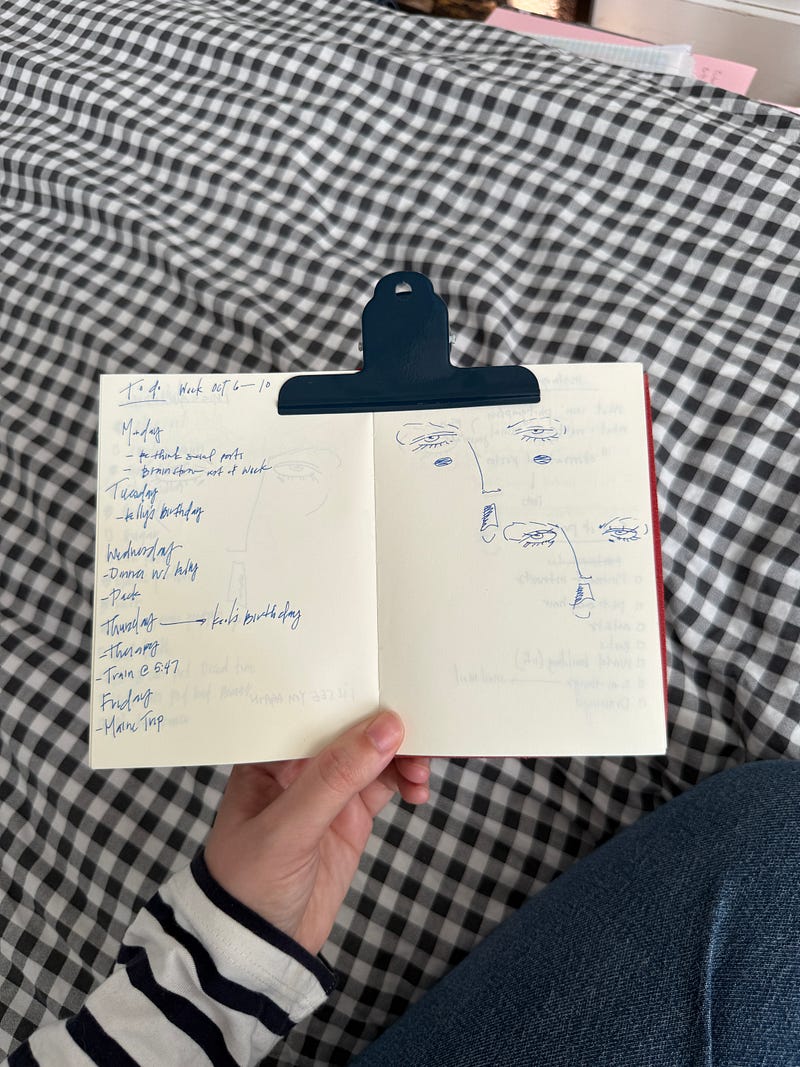 To do Week OCT 6-10
Monday
- Re-think social posts
- Brainstorm rest of week
Tuesday
- Kelly's Birthday
Wednesday
- Dinner w/ Kelly
- Pack
Thursday → Birthday
- Therapy
- Train @ 5:47
Friday
- Maine Trip